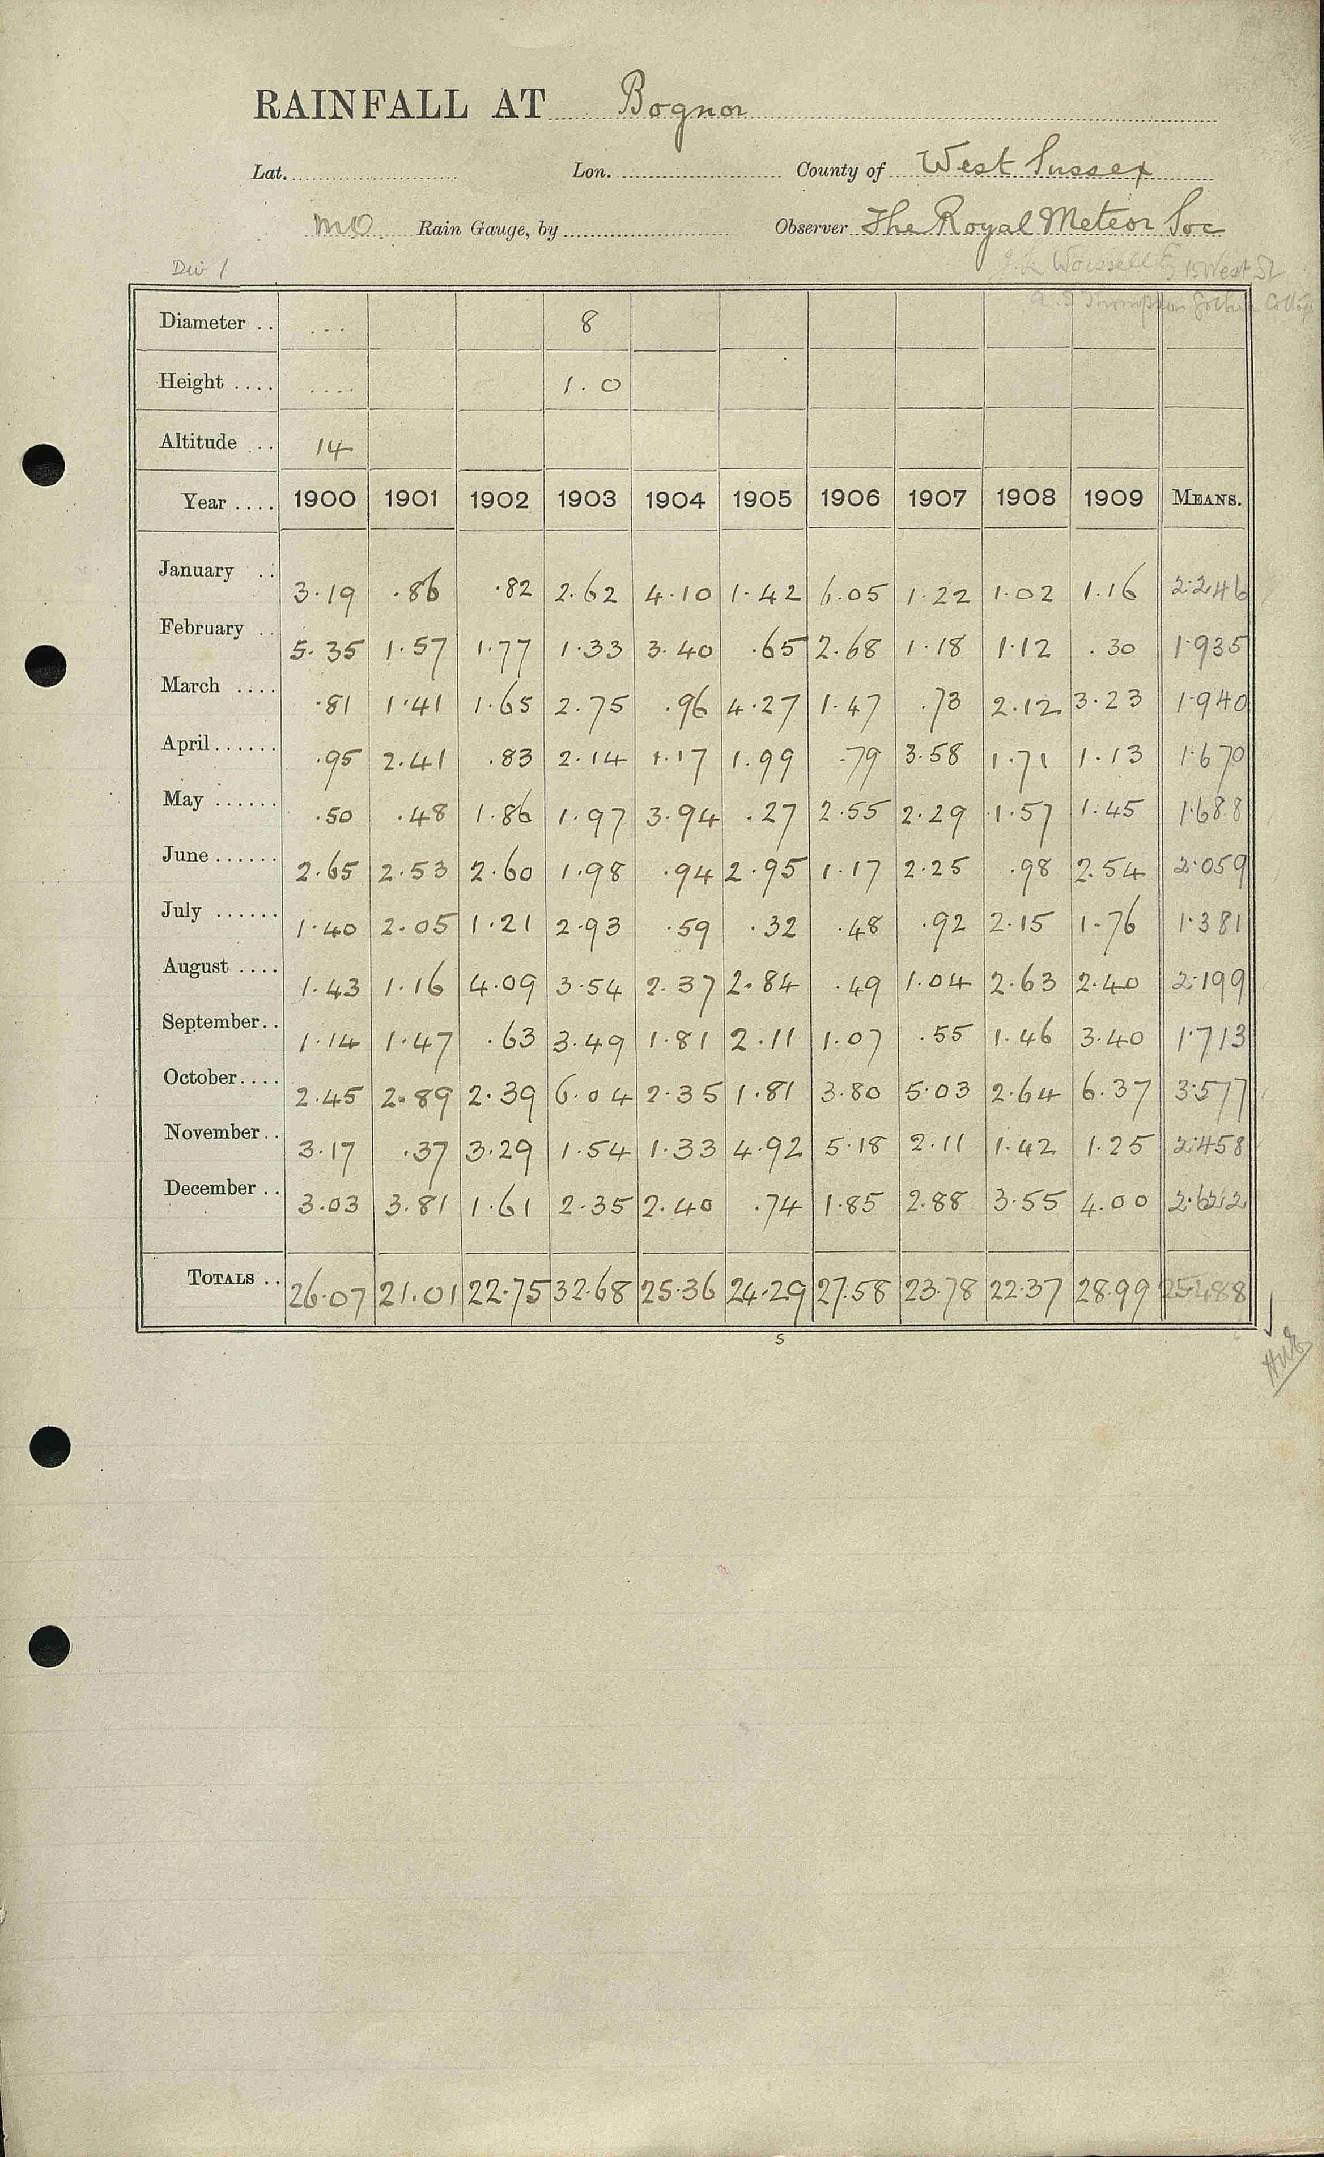 RAINFALL AT Bognor
Lat. Lon. County of West Sussex
MO Rain Gauge, by Observer The Royal Meteor Soc
Div 1 15 West St
Diameter .. ... 8
Height .... .... 1.0
Altitude .. 14
Year .... 1900 1901 1902 1903 1904 1905 1906 1907 1908 1909 MEANS.
January .. 3.19 .86 .82 2.62 4.10 1.42 6.05 1.22 1.02 1.16 2.246
February .. 5.35 1.57 1.77 1.33 3.40 .65 2.68 1.18 1.12 .30 1.935
March .... .81 1.41 1.65 2.75 .96 4.27 1.47 .73 2.12 3.23 1.940
April...... .95 2.41 .83 2.14 1.17 1.99 .79 3.58 1.71 1.13 1.670
May ...... .50 .48 1.86 1.97 3.94 .27 2.55 2.29 1.57 1.45 1.688
June...... 2.65 2.53 2.60 1.98 .94 2.95 1.17 2.25 .98 2.54 2.059
July ...... 1.40 2.05 1.21 2.93 .59 .32 .48 .92 2.15 1.76 1.381
August .... 1.43 1.16 4.09 3.54 2.37 2.84 .49 1.04 2.63 2.40 2.199
September.. 1.14 1.47 .63 3.49 1.81 2.11 1.07 .55 1.46 3.40 1.713
October.... 2.45 2.89 2.39 6.04 2.35 1.81 3.80 5.03 2.64 6.37 3.577
November.. 3.17 .37 3.29 1.54 1.33 4.92 5.18 2.11 1.42 1.25 2.458
December .. 3.03 3.81 1.61 2.35 2.40 .74 1.85 2.88 3.55 4.00 2.622
TOTALS .. 26.07 21.01 22.75 32.68 25.36 24.29 27.58 23.78 22.37 28.99 25.488
S